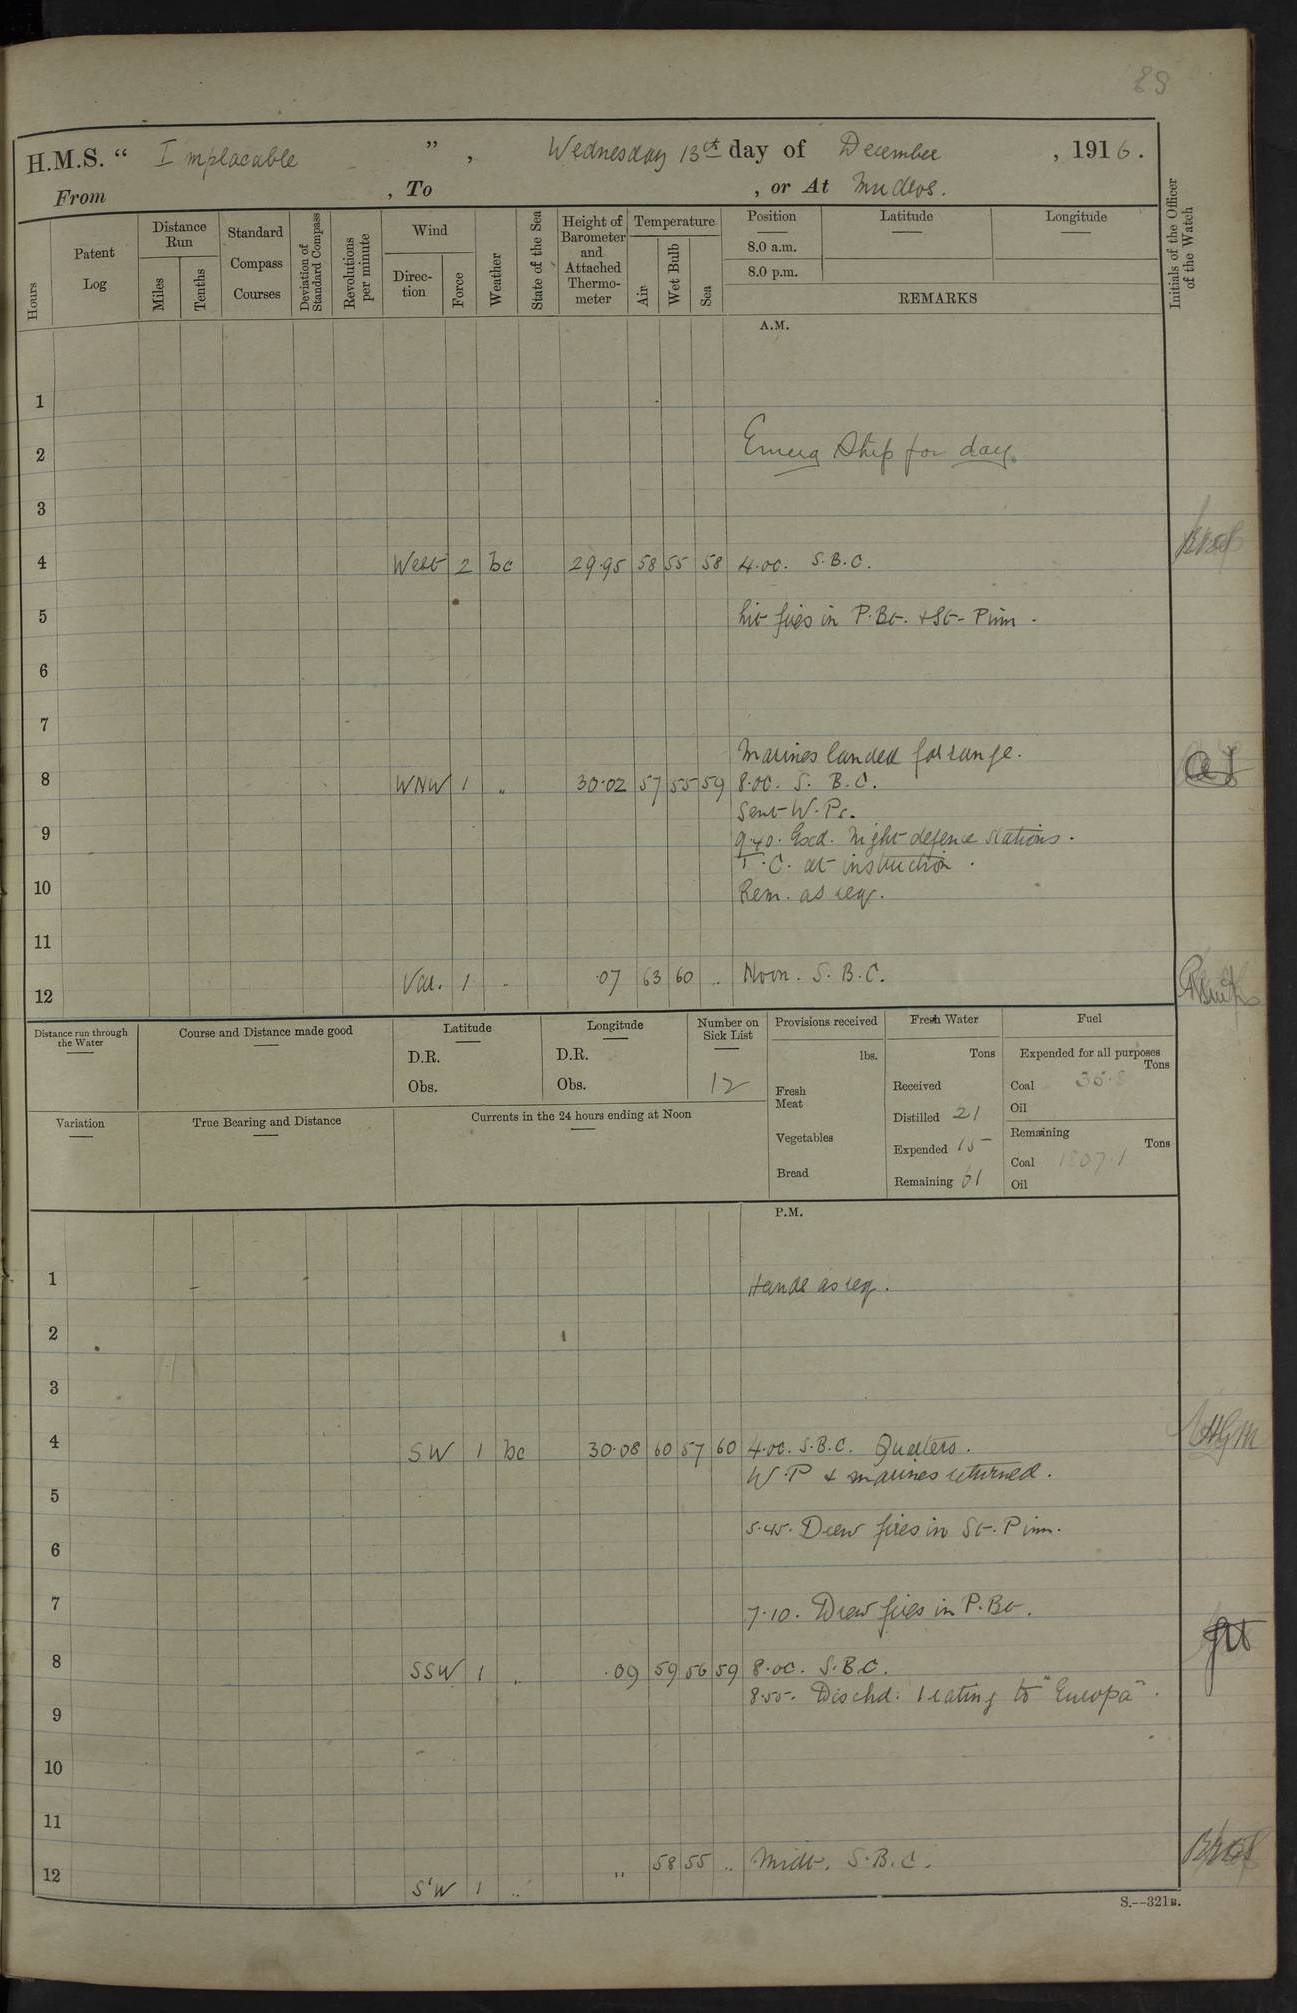 89
H.M.S. “ Implacable ” , Wednesday 13th day of December , 1916.
From , To , or At Mudros.
Hours
Patent Log
Distance Run
Miles
Tenths
Standard Compass Courses
Deviation of Standard Compass
Revolutions per minute
Wind
Direc-tion
Force
Weather
State of the Sea
Height of Barometer and Attached Thermo-meter
Temperature
Air
Wet Bulb
Sea
Position
Latitude
Longitude
8.0 a.m.
8.0 p.m.
REMARKS
Initials of the Officer of the Watch
A.M.
1
2 Emerg Ship for day.
3
4 West 2 bc 29.95 58 55 58 4.00. S.B.C.
5 Lit fires in P.Bt. + St-Pinn.
6
7
Marines landed for range.
8 WNW 1 " 30.02 57 55 59 8.00. S. B.C.
Sent W.Ps.
9 9.40. Exd. Night defence stations.
T.C. at instruction.
10 Rem. as req.
11
12 Var. 1 " .07 63 60 " Noon. S.B.C.
Distance run through the Water
Course and Distance made good
Latitude
D.R.
Obs.
Longitude
D.R.
Obs.
Number on Sick List
12
Provisions received
lbs.
Fresh Meat
Vegetables
Bread
Fresh Water
Tons
Received
Distilled 21
Expended 15
Remaining 61
Fuel
Expended for all purposes
Tons
Coal 35.8
Oil
Remaining
Tons
Coal 1807.1
Oil
Variation
True Bearing and Distance
Currents in the 24 hours ending at Noon
P.M.
1 Hands as req.
2
3
4 SW 1 bc 30.08 60 57 60 4.00. S.B.C. Quarters.
W.P + marines returned.
5
5.45. Drew fires in St-Pinn.
6
7 7.10. Drew fires in P.Bt.
8 SSW 1 " .09 59 56 59 8.00. S.B.C.
8.55. Dischd: 1 rating to "Europa".
9
10
11
12 S'W 1 " " 58 55 " Midt. S.B.C.
S.--321B.